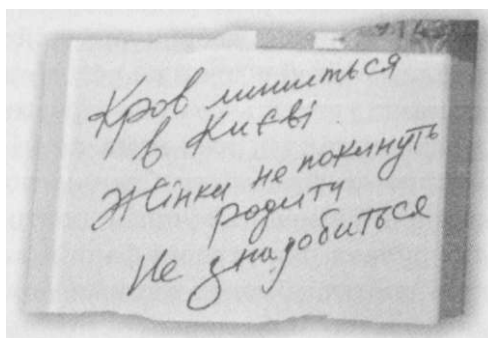 Кров лишиться
в Києві
Жінки не покинуть
родину
Не знадобиться